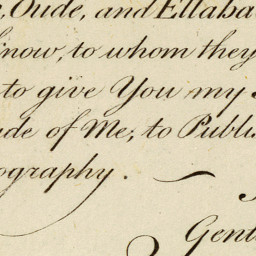 , Oude, and Ellaba
know, to whom they
to give You my
de of Me, to Publi
ography.
Gent